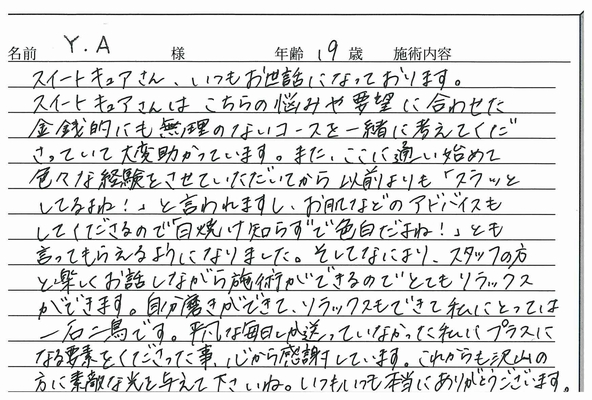 名前 Y.A 様 年齢 19 歳 施術内容
スイートキュアさん、いつもお世話になっております。
スイートキュアさんは こちらの悩みや要望に合わせた
金銭的にも無理のないコースを一緒に考えてくだ
さっていて大変助かっています。また、ここに通い始めて
色々な経験をさせていただいてから以前よりも「スラッと
してるよね!」と言われますし、お肌などのアドバイスも
してくださるので"日焼け知らず"で色白だよね!」とも
言ってもらえるようになりました。そしてなにより、スタッフの方
と楽しくお話しながら施術ができるのでとてもリラックス
ができます。自分磨きができて、リラックスもできて私にとっては
一石二鳥です。平凡な毎日しか送っていなかった私に プラスに
なる要素をくださった事、心から感謝しています。これからも沢山の
方に素敵な光を与えて下さいね。いつもいつも本当にありがとうございます。